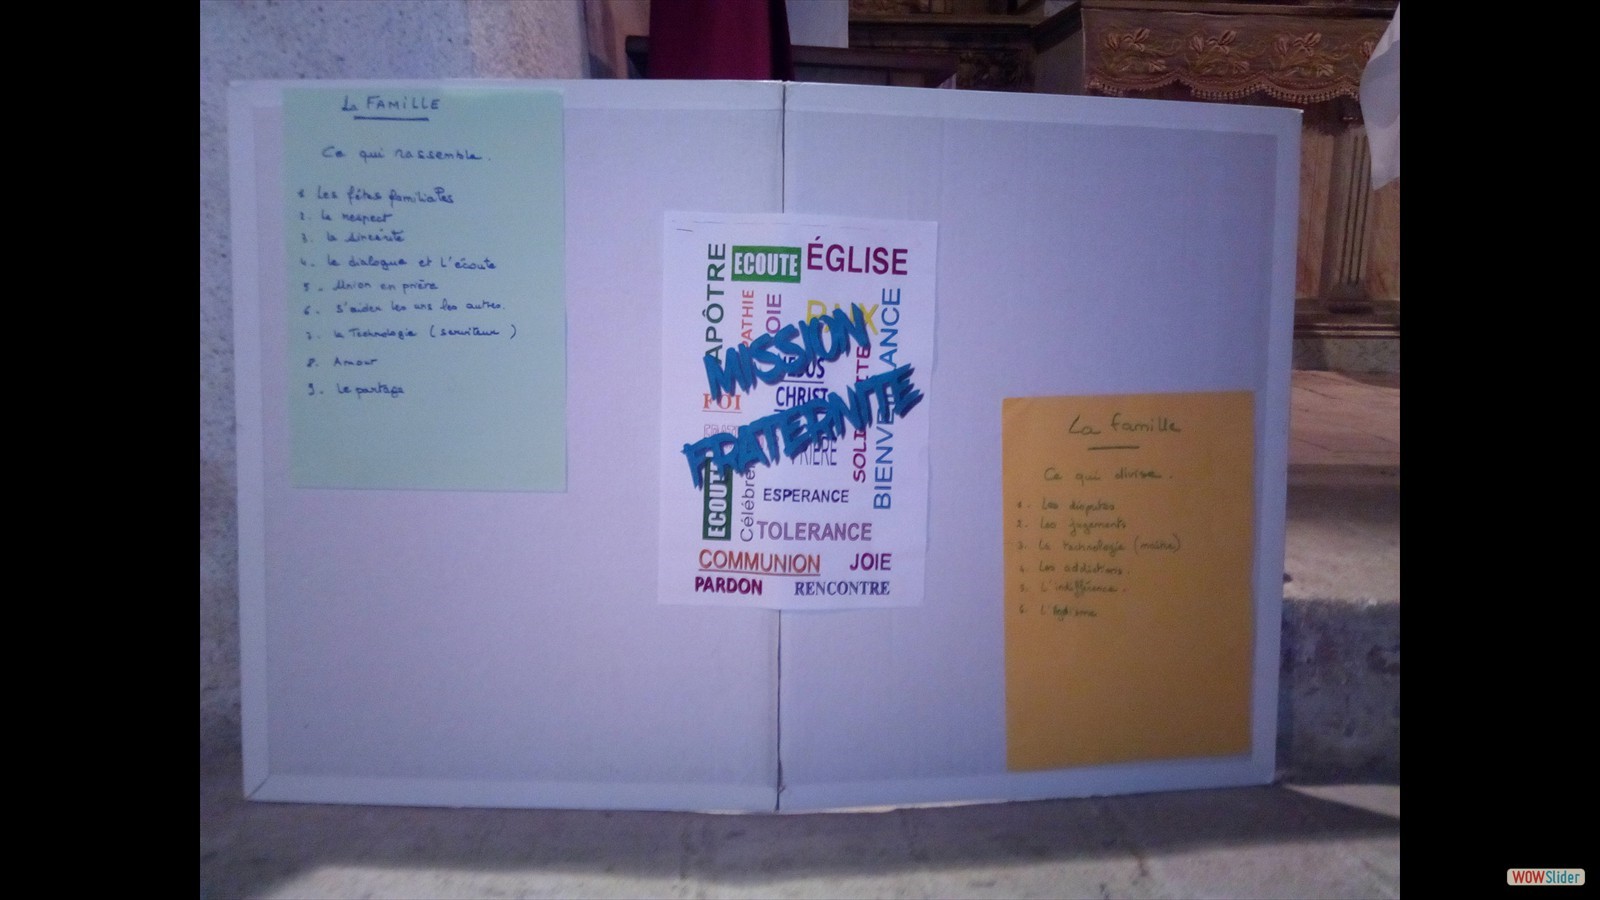 La FAMILLE
Ce qui rassemble.
1. Les fêtes familiales
2. Le respect
3. La sincérité
4. Le dialogue et l'écoute
5. Union en prière
6. S'aider les uns les autres.
7. La Technologie (serviteur)
8. Amour
9. Le partage
APÔTRE
ECOUTE
ÉGLISE
JOIE
BIENVEILLANCE
MISSION
FRATERNITE
JESUS
CHRIST
FOI
PRIÈRE
SOLIDARITE
ECOUTE
Célébrer
ESPERANCE
TOLERANCE
COMMUNION
JOIE
PARDON
RENCONTRE
La famille
Ce qui divise.
1. Les disputes
2. Les jugements
3. La technologie (maître)
4. Les addictions.
5. L'indifférence.
6. L'égoïsme
WOWSlider